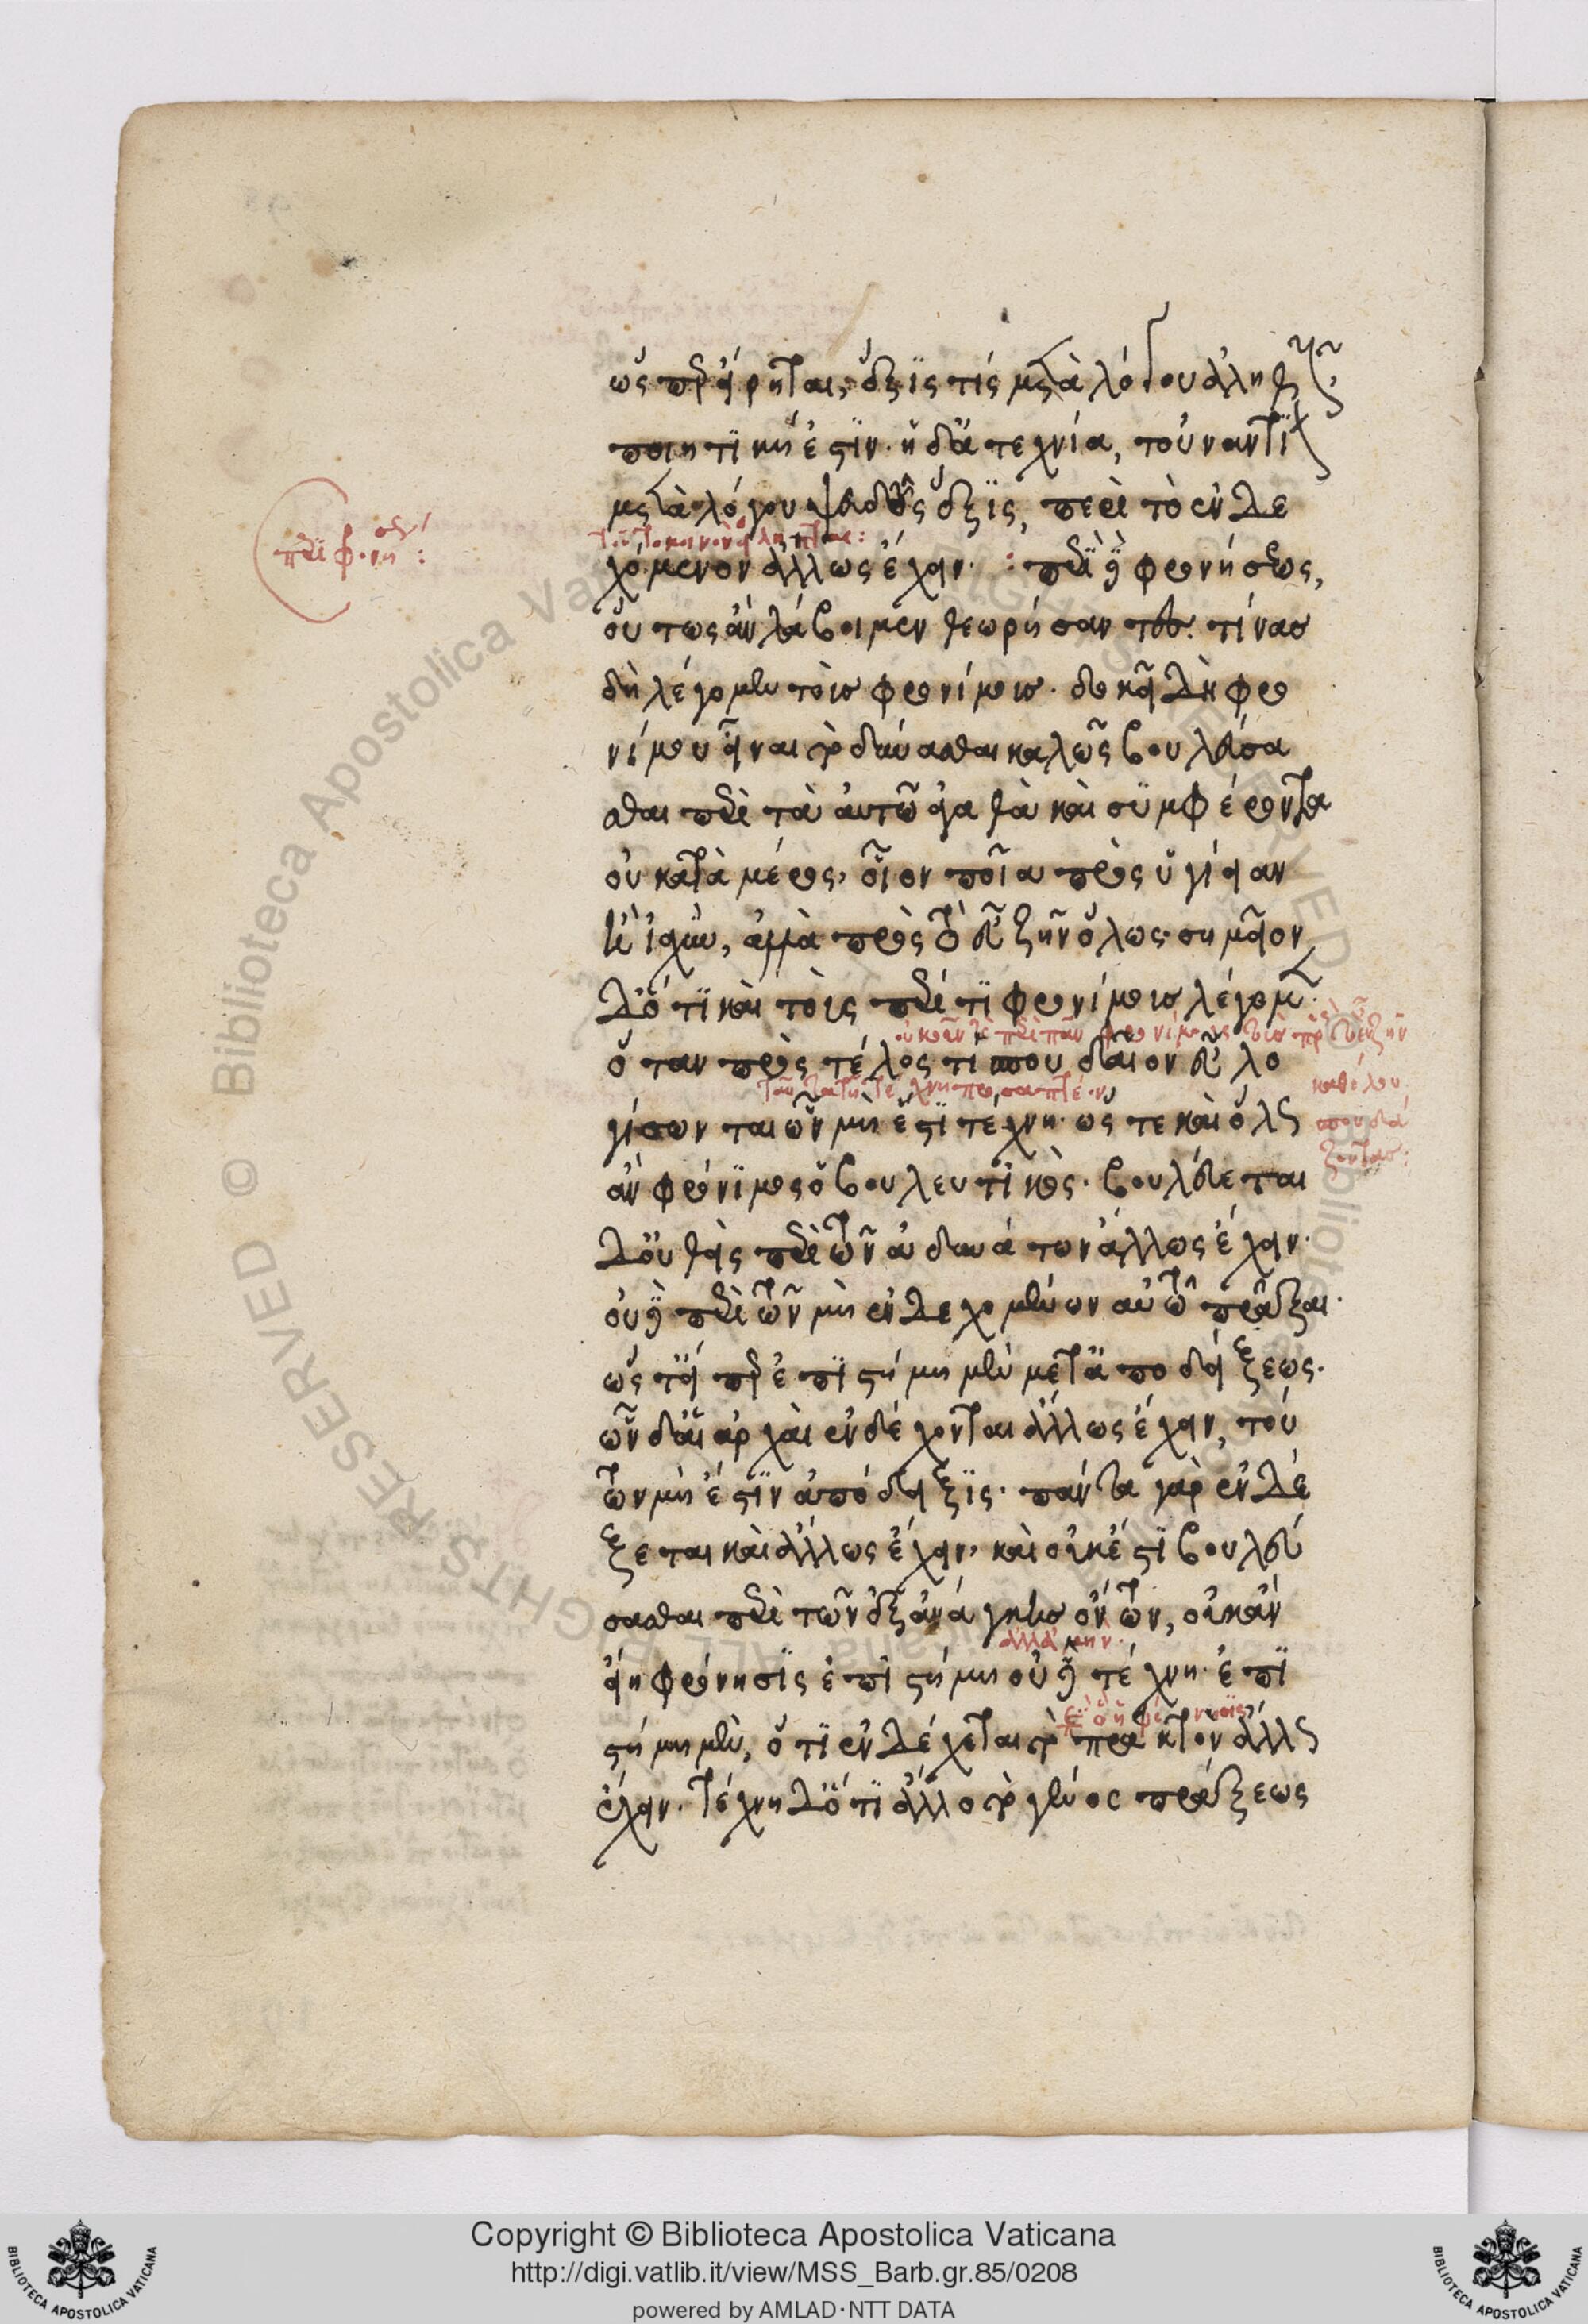 ὥσπερ εἴρηται, ἕξις τίς μετὰ λόγου ἀληθοῦς
ποιητική ἐστιν· ἡ δ' ἀτεχνία, τοὐναντίον
μετὰ λόγου ψευδοῦς ἕξις, περὶ τὸ ἐνδε
χόμενον ἄλλως ἔχειν· : περὶ δὲ φρονήσεως,
περὶ φρονήσεως :
οὕτως ἂν λάβοιμεν θεωρήσαντες τίνας
δὴ λέγομεν τοὺς φρονίμους· δοκεῖ δὴ φρο
νίμου εἶναι τὸ δύνασθαι καλῶς βουλεύσα
σθαι περὶ τὰ αὑτῷ ἀγαθὰ καὶ συμφέροντα
οὐ κατὰ μέρος, οἷον ποῖα πρὸς ὑγίειαν
ἢ ἰσχύν, ἀλλὰ πρὸς τὸ εὖ ζῆν ὅλως· σημεῖον
δ' ὅτι καὶ τοὺς περί τι φρονίμους λέγομεν·
ὅταν πρὸς τέλος τι σπουδαῖον εὖ λο
γίσωνται ὧν μή ἐστι τέχνη· ὥστε καὶ ὅλως
ἂν φρόνιμος ὁ βουλευτικός· βουλεύεται
δ' οὐθεὶς περὶ τῶν ἀδυνάτων ἄλλως ἔχειν·
οὐδὲ περὶ τῶν μὴ ἐνδεχομένων αὐτῷ πρᾶξαι·
ὥστ' εἴπερ ἐπιστήμη μὲν μετὰ ἀποδείξεως·
ὧν δ' αἱ ἀρχαὶ ἐνδέχονται ἄλλως ἔχειν, τού
των μή ἐστιν ἀπόδειξις· πάντα γὰρ ἐνδέ
ξεται καὶ ἄλλως ἔχειν, καὶ οὐκ ἔστι βουλεύ
σασθαι περὶ τῶν ἐξ ἀνάγκης ὄντων, οὐκ ἂν
ἀλλὰ μὴν
εἴη φρόνησις ἐπιστήμη οὐδὲ τέχνη· ἐπι
στήμη μὲν, ὅτι ἐνδέχεται τὸ πρακτὸν ἄλλως
ἔχειν· τέχνη δ' ὅτι ἄλλο τὸ γένος πράξεως
Copyright © Biblioteca Apostolica Vaticana
http://digi.vatlib.it/view/MSS_Barb.gr.85/0208
powered by AMLAD·NTT DATA